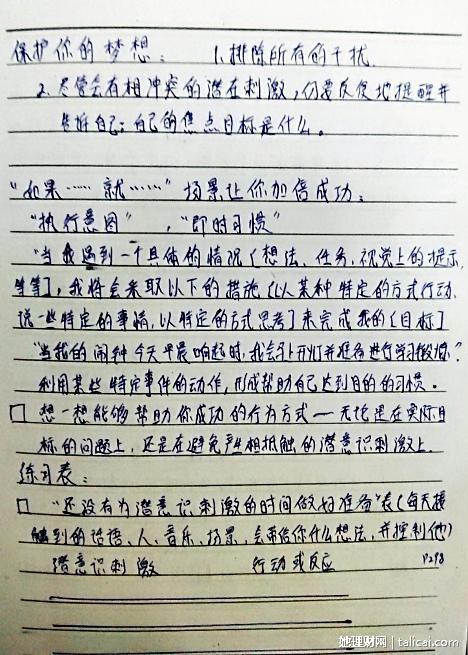 保护你的梦想： 1.排除所有的干扰
2.尽管会有相冲突的潜在刺激，仍要反复地提醒并
告诉自己：自己的焦点目标是什么。
“如果……就……”场景让你加倍成功：
“执行意图”，“即时习惯”
“当我遇到一个具体的情况[想法、任务、视觉上的提示、
等等]，我将会采取以下的措施[以某种特定的方式行动、
说一些特定的事情，以特定的方式思考]来完成我的[目标]
“当我的闹钟今天早晨响起时，我会马上开灯并准备进行学习
利用某些特定事件的动作，形成帮助自己达到目的的习惯。
□ 想一想能够帮助你成功的行为方式—无论是在实际目
标的问题上，还是在避免产生相抵触的潜意识刺激上.
练习表：
□ “还没有为潜意识刺激的时间做好准备”表(每天接
触到的话语、人、音乐、场景，会带给你什么想法，并控制他)
潜意识刺激 行动或反应 P298
她理财网 | talicai.com